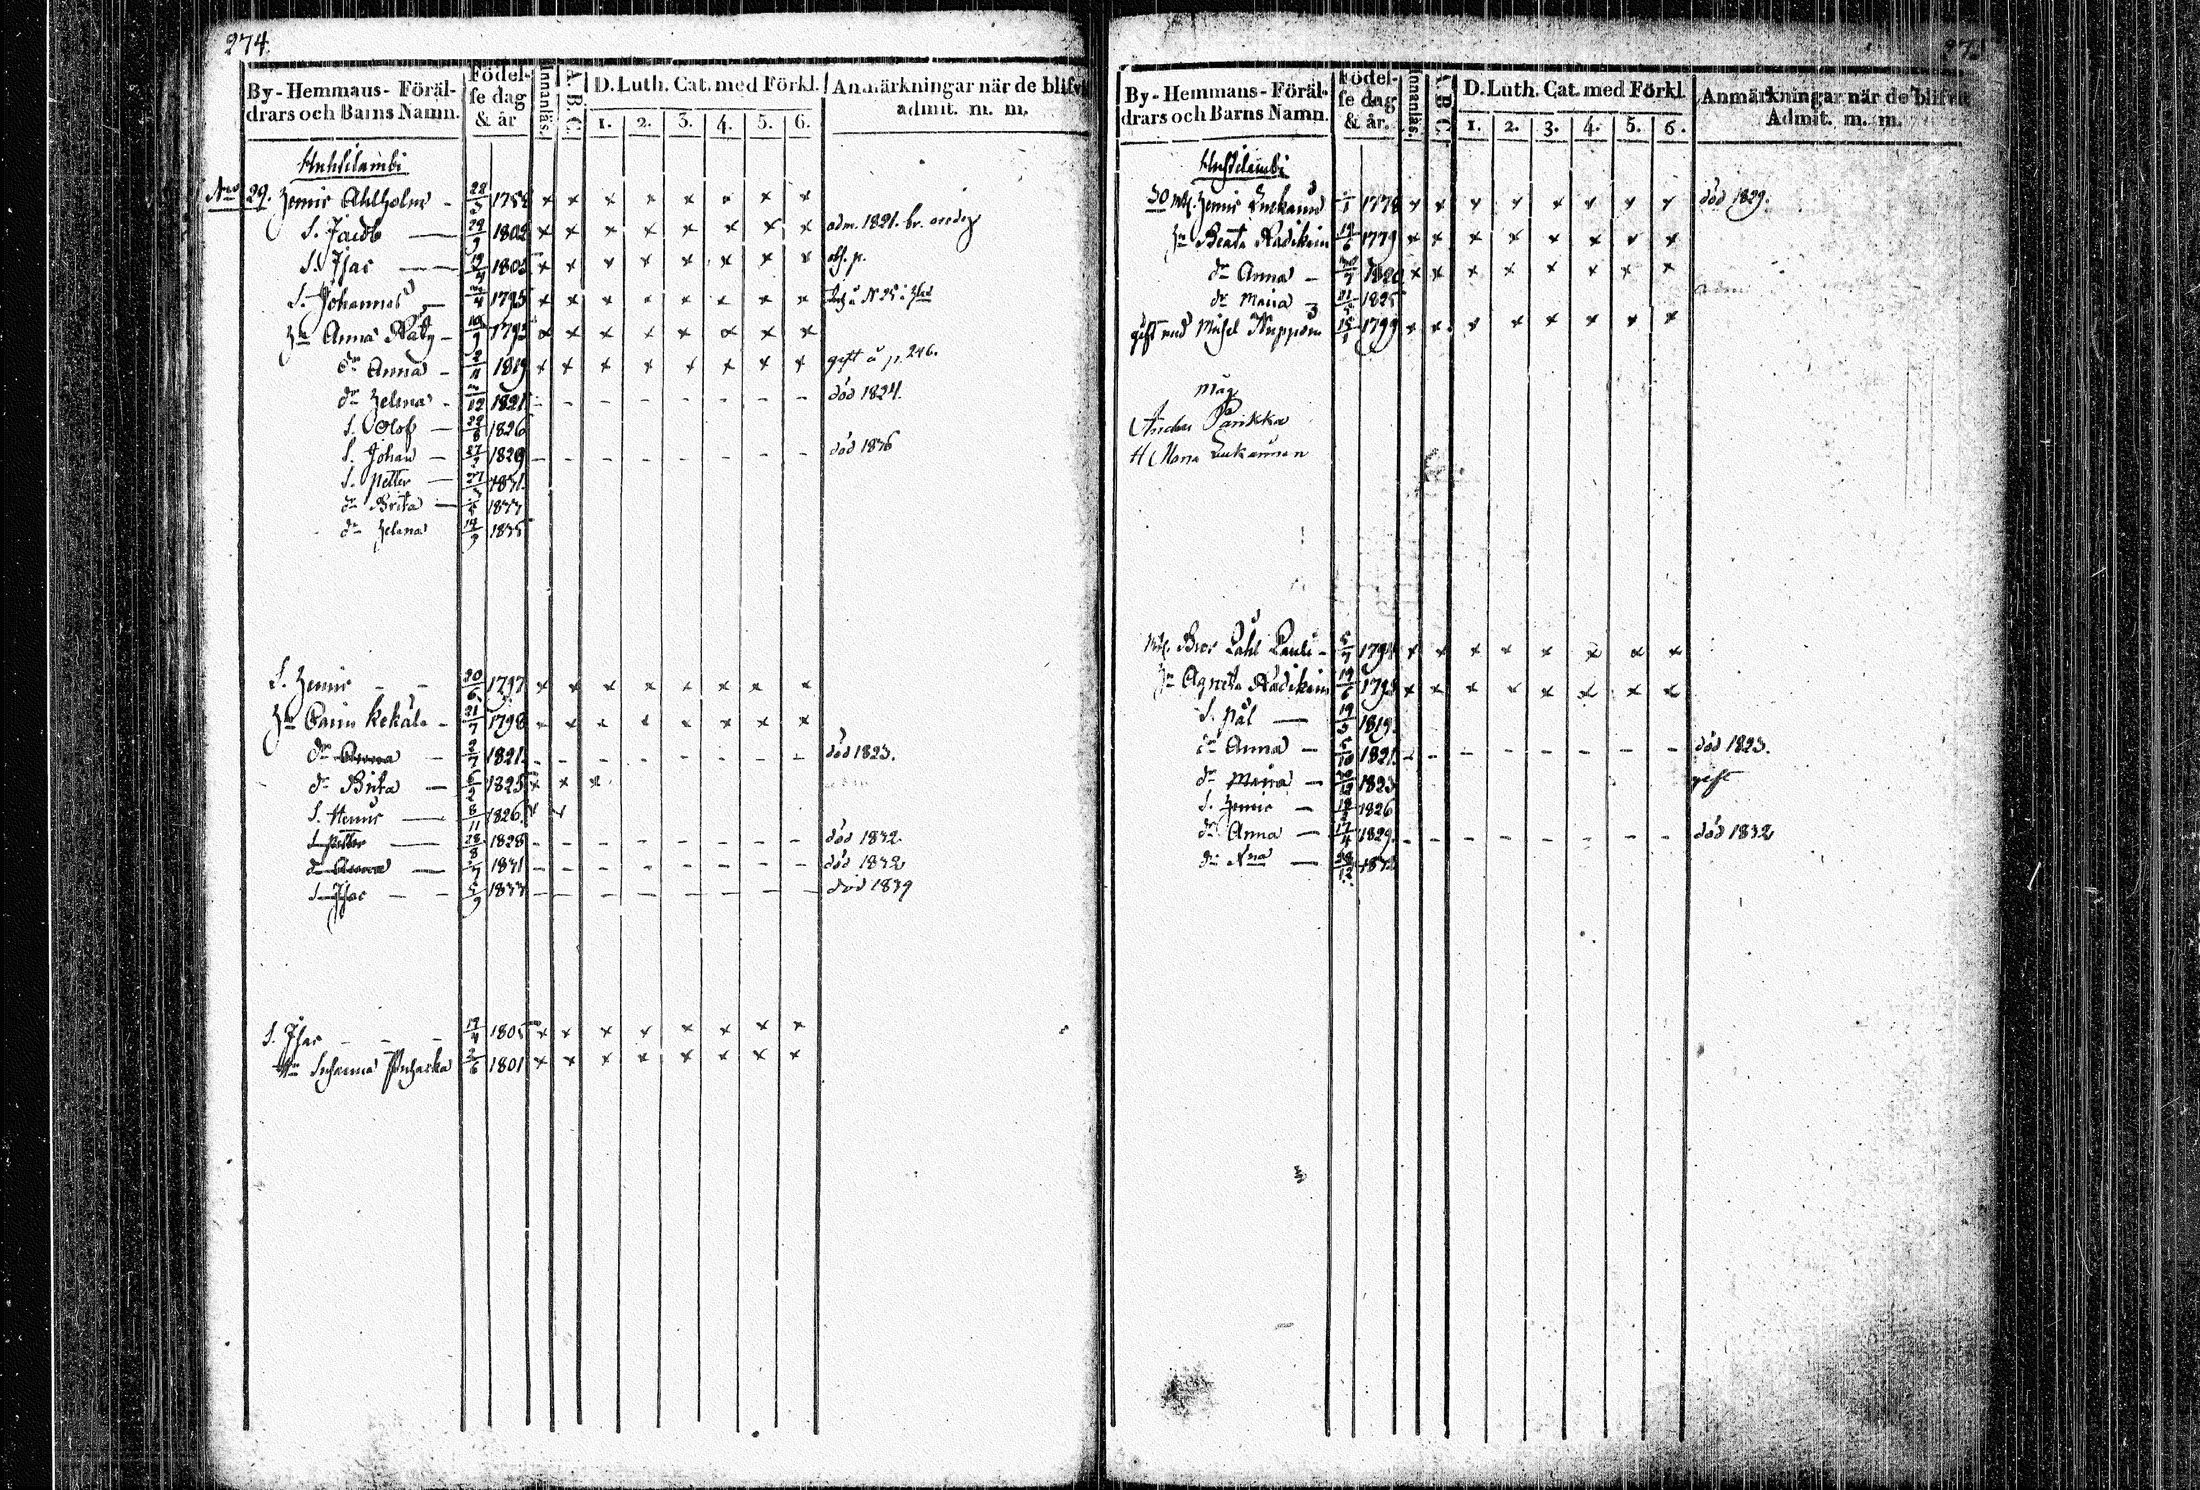 274.
By-Hemmans-Föräl- Födel- Innanläs. A.B.C. D. Luth. Cat. med Förkl. Anmärkningar när de blifvit
drars och Barns Namn. se dag & år 1. 2. 3. 4. 5. 6. admit. m. m.
Huhtilambi
No 29. Henric Ahlholm - 28/5 1758 x x x x x x x x
S. Jacob — 29/9 1802 x x x x x x x x adm. 1821.
S. Isac — 19/4 1805 x x x x x x x x
S. Johannes — /4 1795 x x x x x x x x
Hu Anna Räty - /9 1792 x x x x x x x x
dr Anna - 2/11 1819 x x x x x x x x gift å p. 246.
dr Helena - /12 1821 - - - - - - - - död 1824.
S. Olof — 22/8 1826
S. Johan — 27/2 1829 - - - - - - - - död 1836
S. Petter — 27/ 1831.
dr Brita — /5 1833
dr Helena 14/9 1835
S. Henric - - 20/6 1797 x x x x x x x x
Hu Carin Kekäl. - 21/7 1798 - x x x x x x x
dr Anna — 2/7 1821. - - - - - - - - död 1823.
dr Brita — 6/2 1825 x x x
S. Henric — 8/11 1826. x x
S. Petter — 28/8 1828 - - - - - - - - död 1832
dr Anna — /7 1831 - - - - - - - - död 1832
S. Isac - - 5/9 1833 - - - - - - - - död 1839
S. Isac - - - 19/4 1805 x x x x x x x x
Hu Susanna Puhakka 2/6 1801 x x x x x x x x
By-Hemmans-Föräl- Födel- Innanläs. A.B.C. D. Luth. Cat. med Förkl. Anmärkningar när de blifvit
drars och Barns Namn. se dag & år. 1. 2. 3. 4. 5. 6. Admit. m. m.
Huhtilambi
30 Henric Lukain /1 1778 x x x x x x x x död 1829.
Hu Beata Radikain 19/6 1779 x x x x x x x x
dr Anna - /7 1820 x x x x x x x x
dr Maria - 21/5 1825
gift med Michel Nuppon 15/1 1799 x x x x x x x x
Måg
Anders Parikka
H Maria Lukainen
Bror Påhl Pauli - 5/7 1794 x x x x x x x x
Hu Agneta Radikain 19/6 1798 x x x x x x x x
S. Pål — 19/3 1819.
dr Anna — 5/10 1821. - - - - - - - - död 1823.
dr Maria — 20/12 1823 gift
S. Henric — 18/ 1826
dr Anna — 17/4 1829. - - - - - - - - död 1832
dr — 28/12 1832